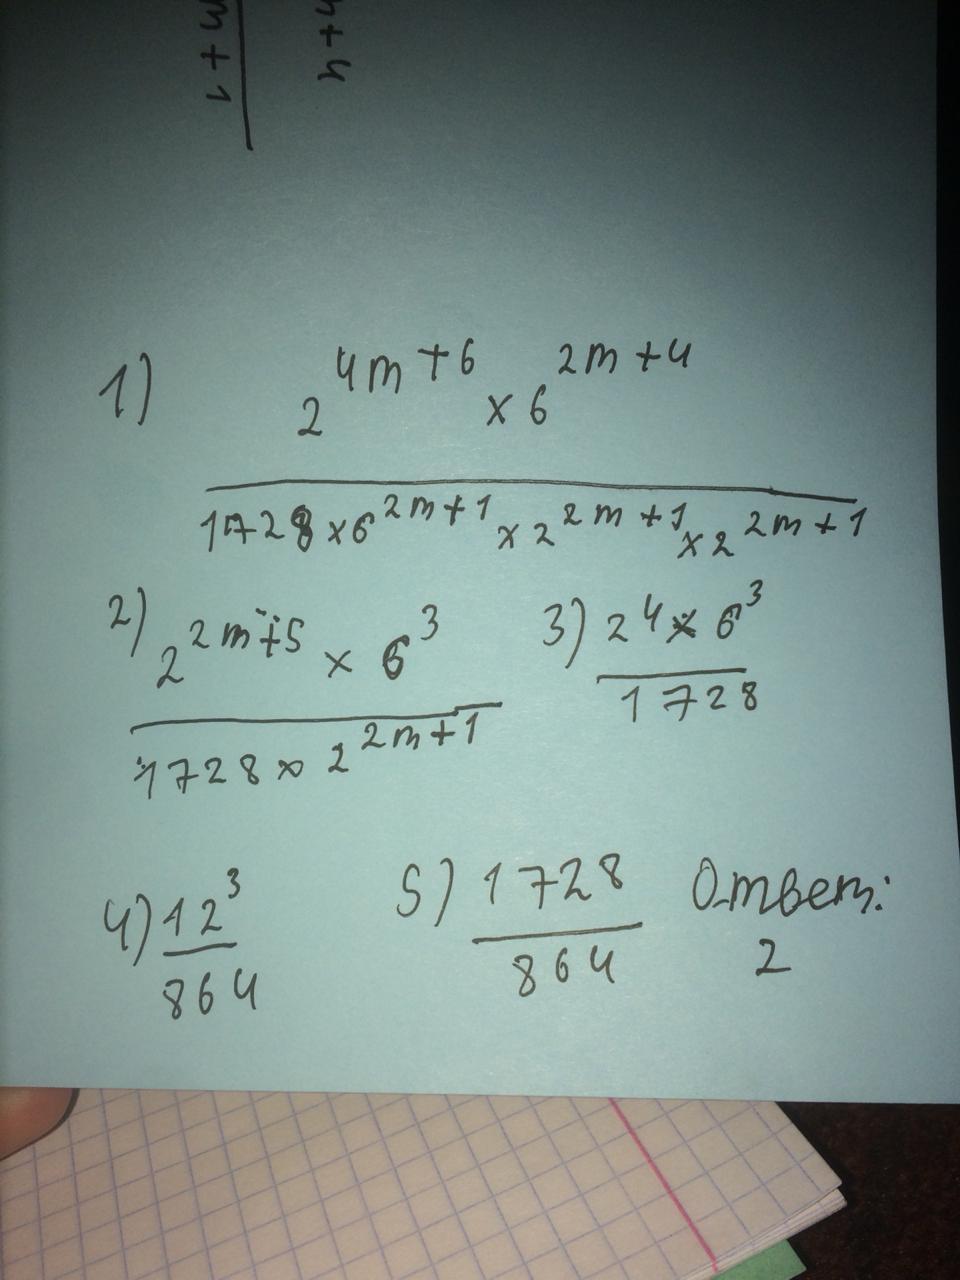 m+1
4+4
1) 2^{4m+6} x 6^{2m+4}
1728 x 6^{2m+1} x 2^{2m+1} x 2^{2m+1}
2) 2^{2m+5} x 6^3
1728 x 2^{2m+1}
3) 2^4 x 6^3
1728
4) 12^3
864
5) 1728
864
Ответ:
2